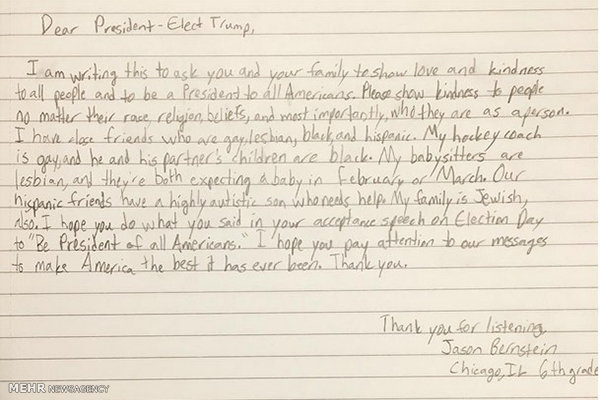 Dear President-Elect Trump,
I am writing this to ask you and your family to show love and kindness
to all people and to be a President to all Americans. Please show kindness to people
no matter their race, religion, beliefs, and most importantly, who they are as a person.
I have close friends who are gay, lesbian, black, and hispanic. My hockey coach
is gay, and he and his partner's children are black. My babysitters are
lesbian, and they're both expecting a baby in February or March. Our
hispanic friends have a highly autistic son who needs help. My family is Jewish,
also. I hope you do what you said in your acceptance speech on Election Day
to "Be President of all Americans." I hope you pay attention to our messages
to make America the best it has ever been. Thank you.
Thank you for listening,
Jason Bernstein
Chicago, IL 6th grade
MEHR NEWSAGENCY